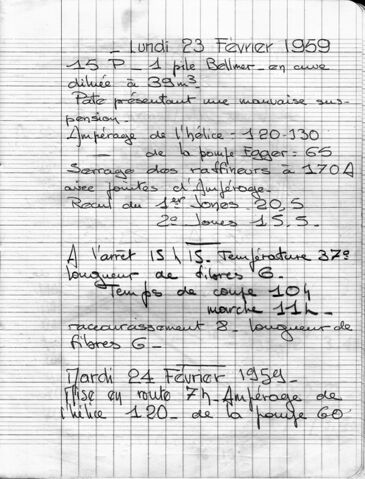 - Lundi 23 Février 1959
15 P - 1 pile Bellmer - en cuve
diluée à 39m³.
Pate présentant une mauvaise sus-
pension.
Ampérage de l'hélice - 120-130
— de la pompe Egger = 65
Serrage des raffineurs à 170A
avec pointes d'Ampérage.
Recul du 1er Jones. 20,5
2e Jones 15.5.
A l'arrêt 15 \ 15. Température 37°
longueur de fibres 6.
Temps de coupe 10h
marche 11h -
raccourcissement 8. longueur de
fibres 6 -
Mardi 24 Février 1959 -
Mise en route 7h - Ampérage de
l'hélice 120 - de la pompe 60